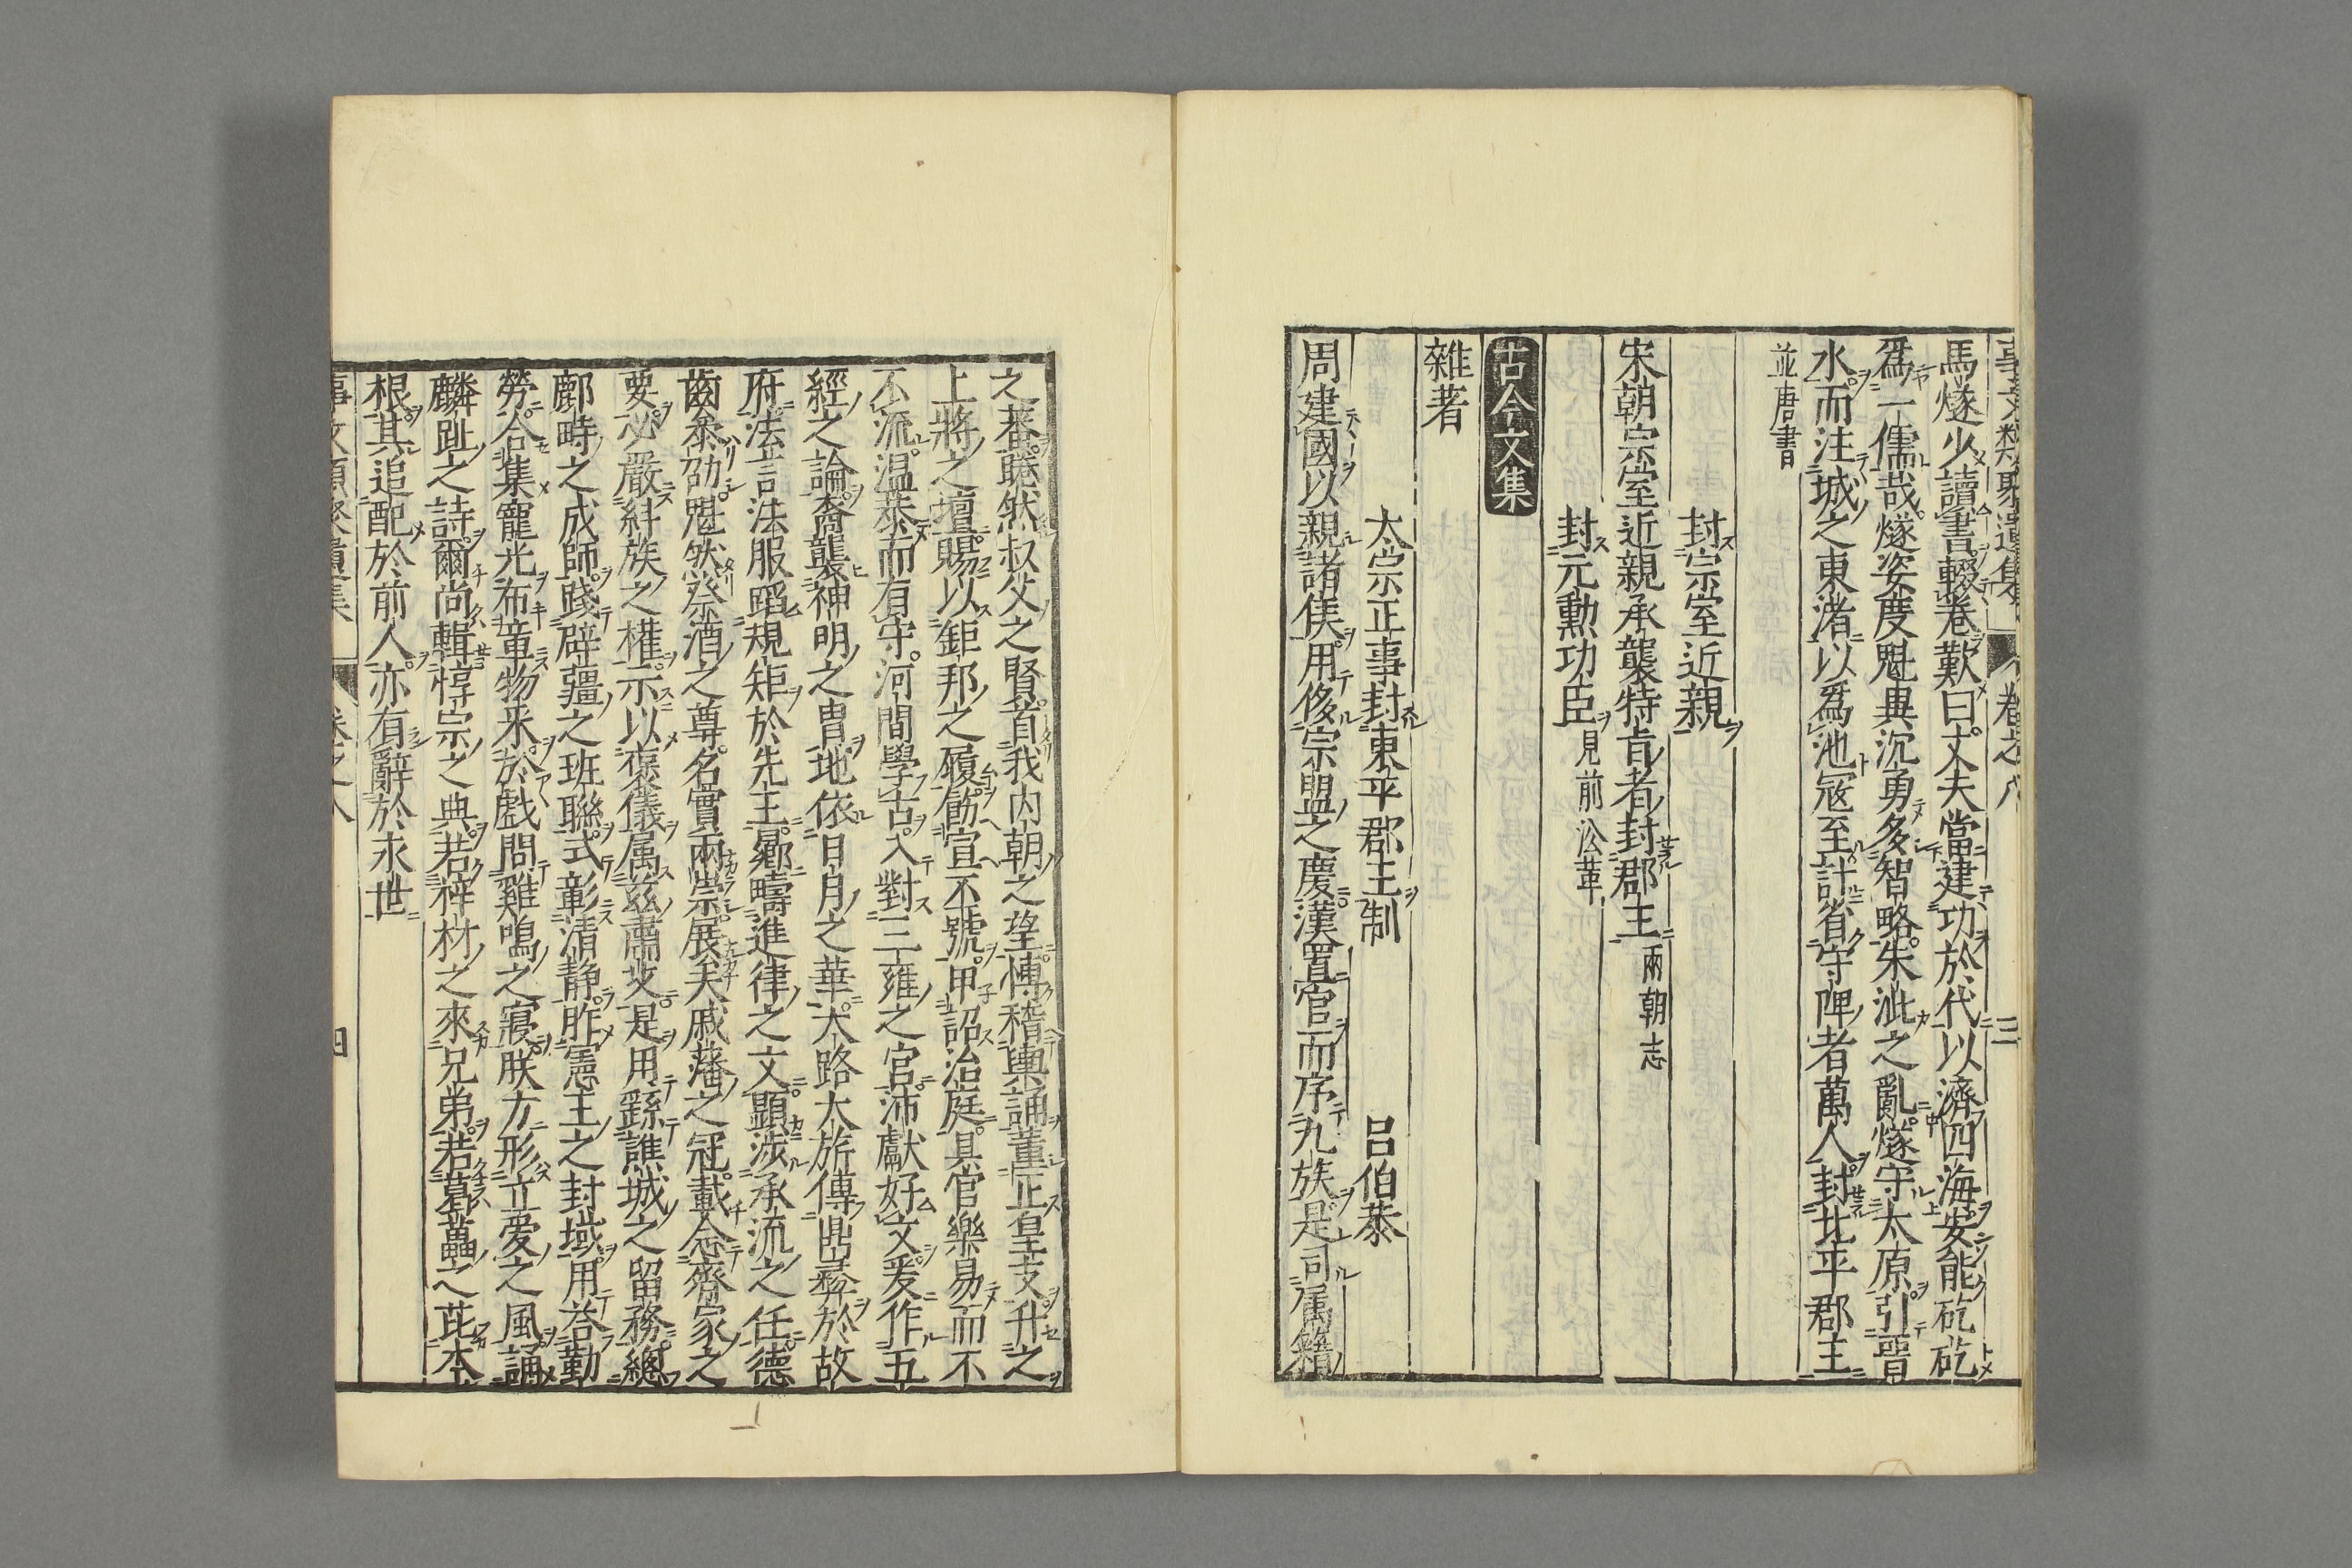 事文類聚遺集 卷之八 三
馬燧少讀書輟卷歎曰丈夫當建功於代以濟四海安能矻矻
爲一儒哉燧姿度魁異沉勇多智略朱泚之亂燧守太原引晉
水而注城之東潴以爲池冦至計省守陴者萬人封北平郡王
並唐書
封宗室近親
宋朝宗室近親承襲特㫖者封郡王兩朝志
封元勲功臣見前公革
古今文集
雜著
太宗正事封東平郡王制 呂伯恭
周建國以親諸侯用侈宗盟之慶漢置官而序九族是司属籍
之蕃睠然叔父之賢首我内朝之望慱稽輿誦董正皇支升之
上將之壇賜以鉅邦之履飭宣丕號甲詔治庭具官樂易而不
不流温恭而有守河間學古入對三雍之官沛獻好文爰作五
經之論裔襲神明之胄地依日月之華大路大旂傳鼎彞於故
府法言法服蹈規矩於先王曏疇進律之文顯渉承流之任德
齒叅劭魁然祭酒之尊名實兩崇展矣戚藩之冠載念齊家之
要必嚴糾族之權示以褒儀属兹肅乂是用繇譙城之留務總
鄜畤之成師踐辟疆之班聯式彰清静胙憲王之封域用荅勤
勞合集寵光布童物釆於戲問雞鳴之寢朕方形立愛之風誦
麟趾之詩爾尚輯惇宗之典若梓材之來兄弟若葛藟之芘本
根其追配於前人亦有辭於永世
事文類聚遺集 卷之八 四